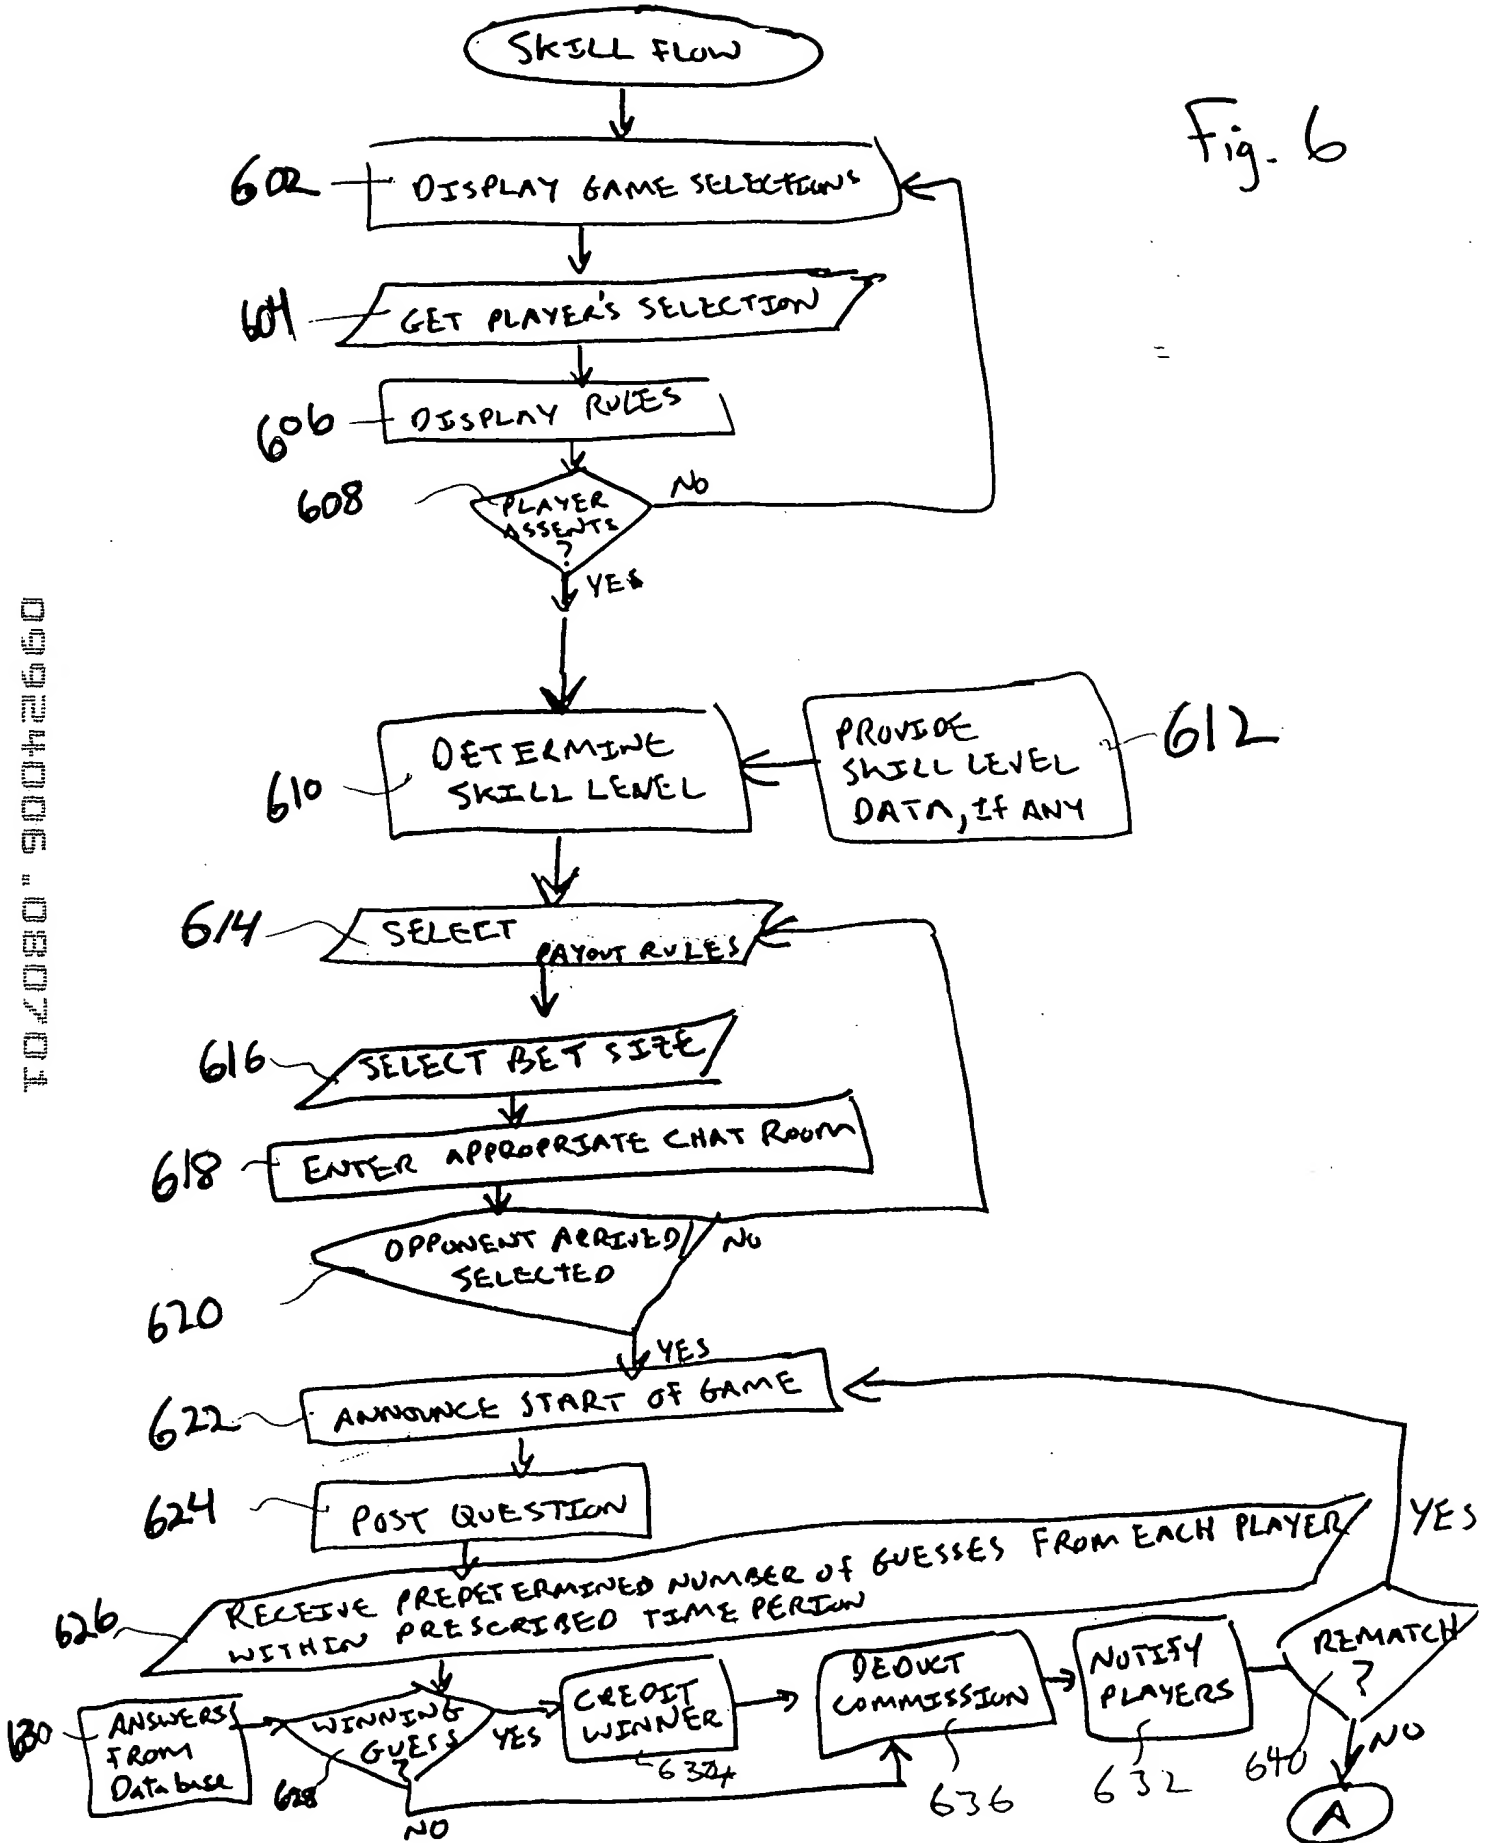 SKILL FLOW
Fig. 6
602
DISPLAY GAME SELECTIONS
604
GET PLAYER'S SELECTION
606
DISPLAY RULES
608
PLAYER
ASSENTS
?
NO
YES
610
DETERMINE
SKILL LEVEL
PROVIDE
SKILL LEVEL
DATA, If ANY
612
09924006.080701
614
SELECT
PAYOUT RULES
616
SELECT BET SIZE
618
ENTER APPROPRIATE CHAT ROOM
620
OPPONENT ARRIVED/
SELECTED
NO
YES
622
ANNOUNCE START OF GAME
624
POST QUESTION
626
RECEIVE PREDETERMINED NUMBER of GUESSES FROM EACH PLAYER
WITHIN PRESCRIBED TIME PERIOD
630
ANSWERS
FROM
Database
WINNING
GUESS
?
628
YES
NO
CREDIT
WINNER
634
DEDUCT
COMMISSION
636
NOTIFY
PLAYERS
632
REMATCH
?
640
YES
NO
A